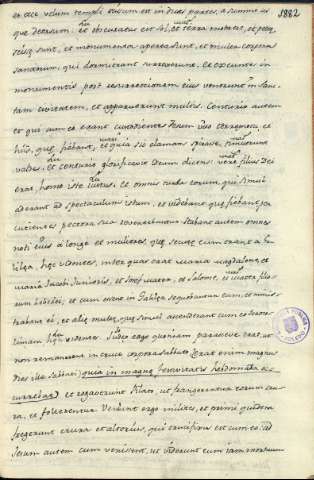 1882
et ecce velum templi scisum est in duas partes, a summo us
que deorsum, et obscuratus est sol, et terra mota est, et petrę
scissę sunt, et monumenta aperta sunt, et multa corpora
sanctorum, qui dormierant surrexerunt, et exeuntes in
monumentis, post resurrectionem eius venerunt in sanc
tam civitatem, et apparuerunt multis. Centurio autem
et qui cum eo erant custodientes Iesum viso terremotu, et
his, quę fiebant, et quia sic clamans timuerunt
valde, et centurio glorificavit Deum dicens: vere filius Dei
erat, homo iste iustus, et omnis turba eorum, qui simul
aderant ad spectaculum istum, et videbant quę fiebant, per
cutientes pectora sua revertebantur. stabant autem omnes
noti eius a longe et mulieres, quę secutę eum erant a Ga
lilęa, hęc videntes, inter quas erat Maria Magdalene, et
Maria Iacobi Iunioris, et Ioseph mater, et Salome, et mater filio
rum Zebedei, et cum esset in Galilęa sequebantur eum, et minis
trabant ei, et alię multę, quę simul ascenderant cum eo Ieroso
limam, videntes. Iudęi ergo quoniam parasceve erat, ut
non remanerent in cruce corpora sabbato (erat enim magnus
dies ille sabbati) quia in magnę hebdomada
et rogaverunt Pilatum, ut frangerentur eorum cru
ra, et tollerentur. Venerunt ergo milites, et primi quidem
fregerunt crura et alterius, qui crucifixus est cum eo. ad
Iesum autem cum venissent, ut viderunt eum iam mortuum